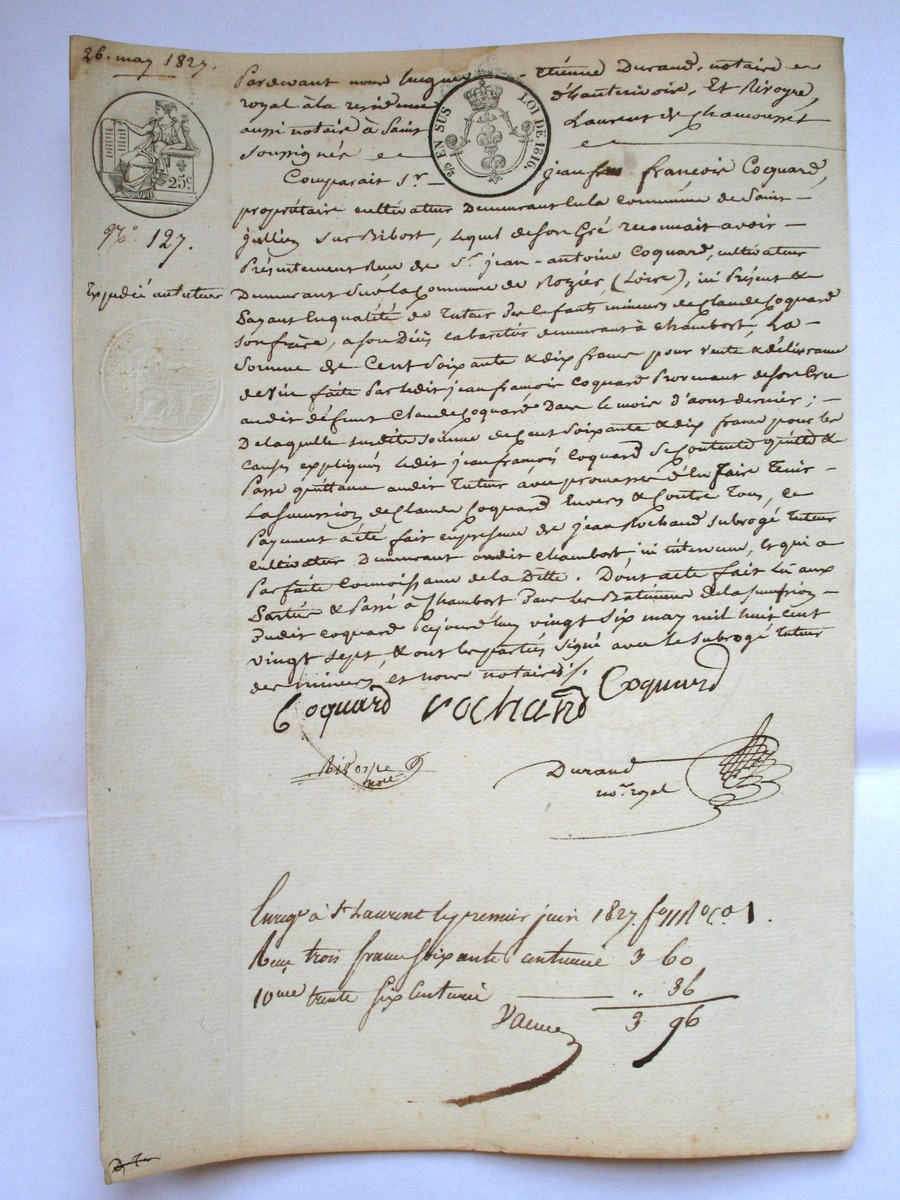 26. may 1827.
Pardevant nous hugues Etienne Durand, notaire
royal à la residence d'hauterivoire, Et Rivoyre,
aussi notaire à Saint Laurent de Chamousset
soussignés
EN SUS LOI DE 1816.
25c
Comparait Sr. jean françois Coquard,
propriétaire cultivateur demeurant en la Commune de Saint
N.o 127.
jullien sur Bibort, lequel de son Gré reconnait avoir
Présentement Reçu de Sr. jean-antoine Coquard, cultivateur
Expédié au tuteur
Demeurant sur la Commune de Rozier, (Loire), ici Présent &
Payant En qualité de tuteur des Enfants mineurs de Claude Coquard
son frère, a son Décès cabaretier demeurant à Chambost, La
Somme de Cent Soixante & dix francs pour vente & délivrance
de vin faite Par ledit jean françois Coquard Provenant de son Cru
audit défunt Claude Coquard Dans le mois d'aout dernier ;
De laquelle susdite somme de Cent Soixante & dix francs pour les
causes expliqués ledit jean françois Coquard Se Contente quitte &
Passe quittance audit Tuteur avec promesse d'En faire tenir
La sucession de Claude Coquard Envers & Contre Tous, Ce
Payement a été fait en présence de jean Rochand subrogé tuteur
cultivateur Demeurant audit Chambost, ici intervenu, Et qui a
Parfaite Connoissance de la Dette. Dont acte fait lu aux
Parties & Passé à Chambost Dans les Batiments de la sucession
dudit Coquard Cejourd'huy vingt six may mil huit cent
vingt sept, & ont les parties signé avec le subrogé tuteur
des mineurs et nous notaires ./.
Coquard rochand Coquard
Durand
no.re royal
Enreg.é à St Laurent le premier juin 1827
Reçu trois francs soixante centimes 3 60
10me trente six Centimes " 36
3 96